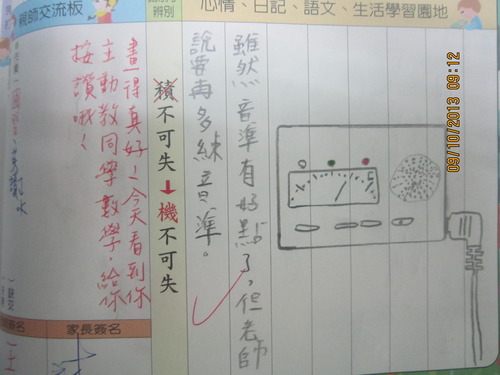 心情、日記、語文、生活學習園地
雖然音準有好點了,但老師
說要再多練音準。
辨別
積不可失➔機不可失
親師交流板
畫得真好!今天看到你
主動教同學數學,給你
按讚哦!
家長簽名
09/10/2013 09:12